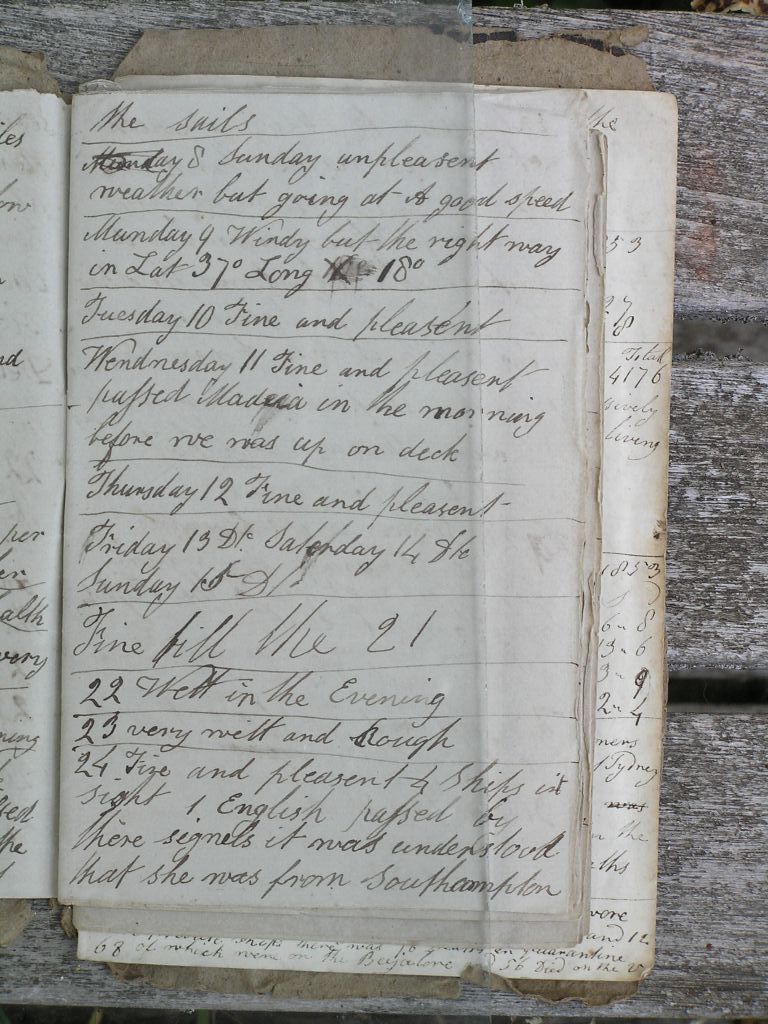 the sails
Munday 8 Sunday unpleasent
weather but going at A good speed
Munday 9 Windy but the right way
in Lat 37° Long 18°
Tuesday 10 Fine and pleasent
Wendnesday 11 Fine and pleasent
passed Madeia in the morning
before we was up on deck
Thursday 12 Fine and pleasent
Friday 13 Do. Saterday 14 Do
Sunday 15 Do
Fine till the 21
22 Wett in the Evening
23 very wett and Rough
24 Fine and pleasent 4 Ships in
sight 1 English passed by
there signels it was understood
that she was from Southampton
the
53
27
8
Total
4176
living
1853
6 " 8
13 " 6
3 " 9
2 " 4
Sydney
was
the
and 12
ships there was 16 quarantine
68 of which were on the Beejalore 56 Died on the
per
alth
very
the